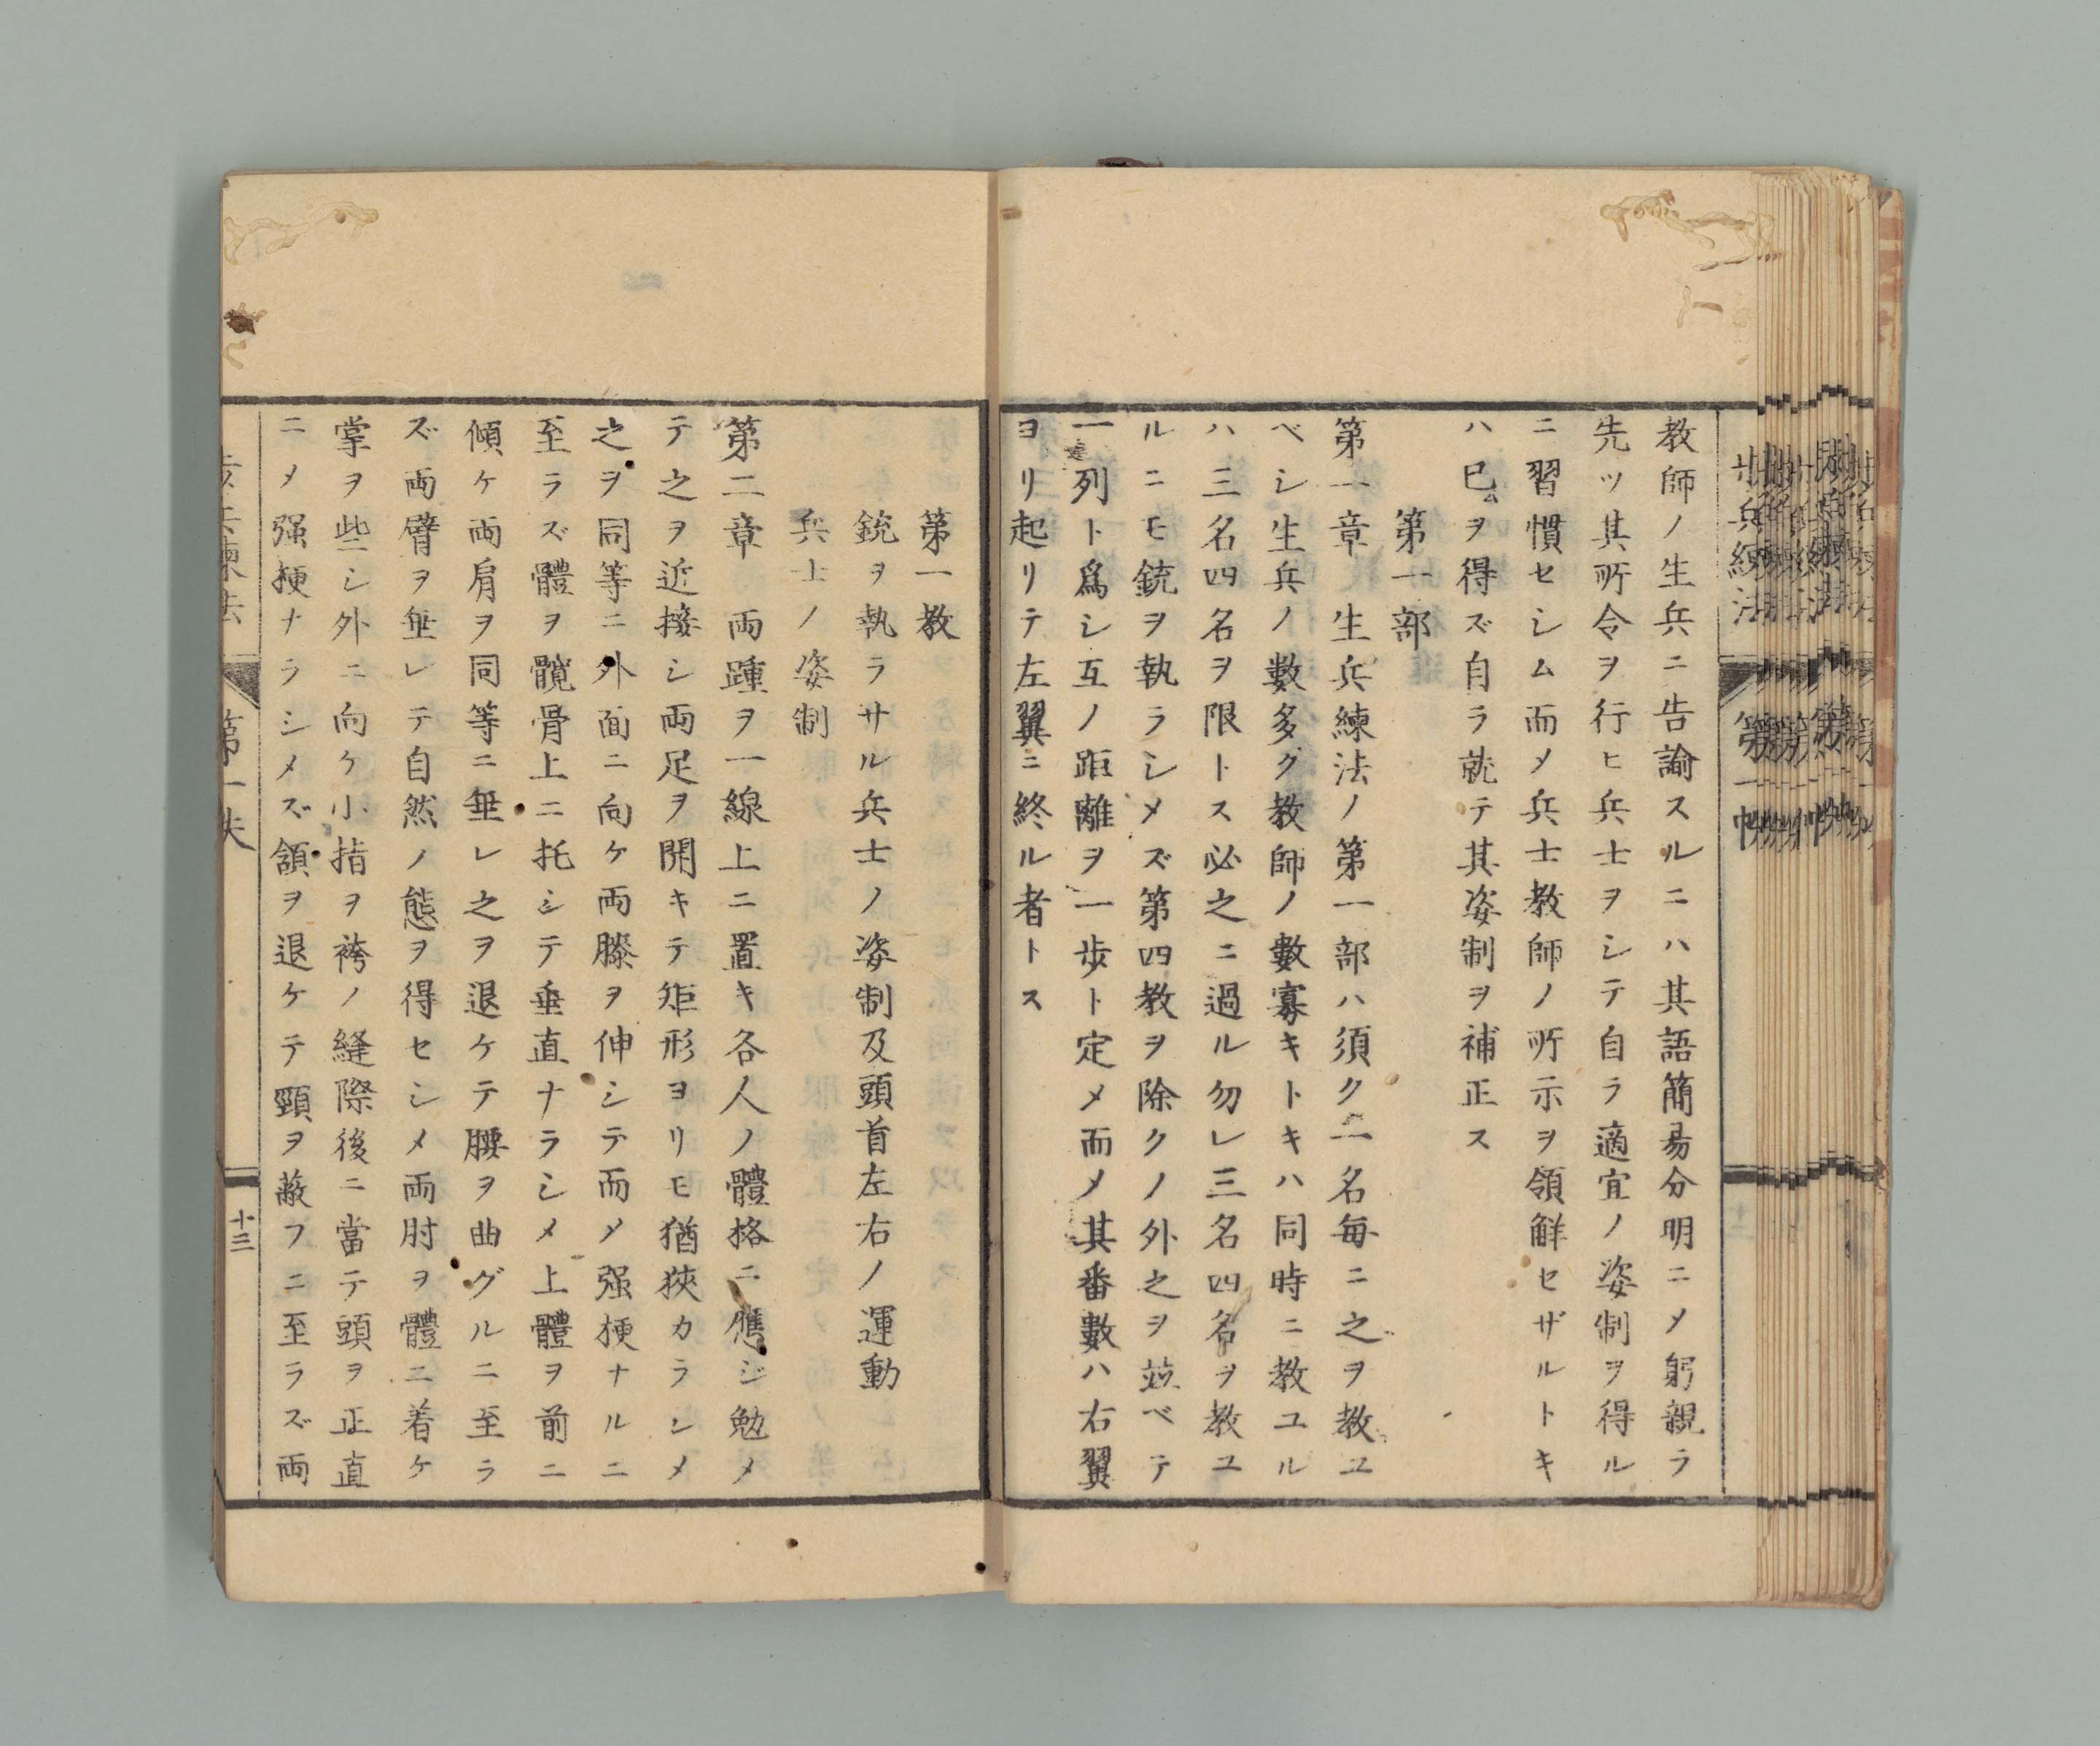 教師ノ生兵ニ告諭スルニハ其語簡昜分明ニメ躬親ラ
先ッ其所令ヲ行ヒ兵士ヲシテ自ラ適宜ノ姿制ヲ得ル
ニ習慣セシム而メ兵士教師ノ所示ヲ領觧セザルトキ
ハ巳ヲ得ズ自ラ就テ其姿制ヲ補正ス
第一部
第一章 生兵練法ノ第一部ハ須ク一名毎ニ之ヲ教ユ
ベシ生兵ノ數多ク教師ノ數寡キトキハ同時ニ教ユル
ハ三名四名ヲ限トス必之ニ過ル勿レ三名四名ヲ教ユ
ルニモ銃ヲ執ラシメズ第四教ヲ除クノ外之ヲ竝ベテ
一列ト爲シ互ノ距離ヲ一歩ト定メ而メ其番數ハ右翼
ヨリ起リテ左翼ニ終ル者トス
第一教
銃ヲ執ラサル兵士ノ姿制及頭首左右ノ運動
兵士ノ姿制
第二章 両踵ヲ一線上ニ置キ各人ノ體格ニ應ジ勉メ
テ之ヲ近接シ両足ヲ開キテ矩形ヨリモ猶狹カラシメ
之ヲ同等ニ外面ニ向ケ両膝ヲ伸シテ而メ强梗ナルニ
至ラズ體ヲ髖骨上ニ托シテ垂直ナラシメ上體ヲ前ニ
傾ケ両肩ヲ同等ニ垂レ之ヲ退ケテ腰ヲ曲グルニ至ラ
ズ両臂ヲ垂レテ自然ノ態ヲ得セシメ両肘ヲ體ニ着ケ
掌ヲ些ニシ外ニ向ケ小指ヲ袴ノ縫際後ニ當テ頭ヲ正直
ニメ强梗ナラシメズ頷ヲ退ケテ頸ヲ蔽フニ至ラズ両
第一帙
十三